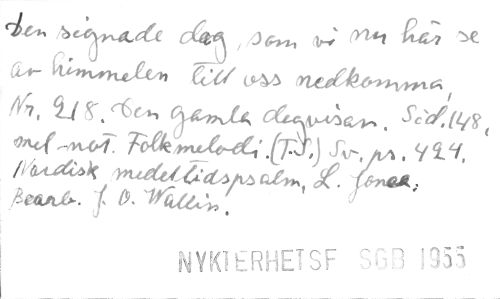 Den signade dag, som vi nu här se
av himmelen till oss nedkomma,
Nr. 218. Den gamla dagvisan. Sid. 148,
mel-not. Folkmelodi. (T.S.) Sv. ps. 424.
Nordisk medeltidspsalm, L. Jonae;
Bearb. J. O. Wallin.
NYKTERHETSF SGB 1955